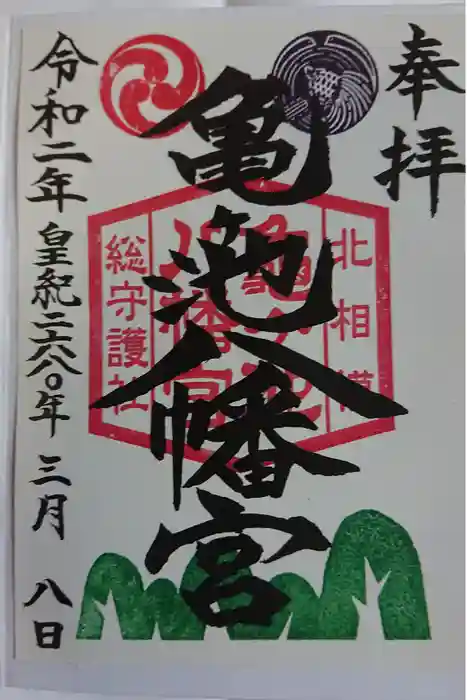 奉拝
亀池八幡宮
北相模
亀ヶ池
八幡宮
総守護社
令和二年 皇紀二六八〇年 三月 八日